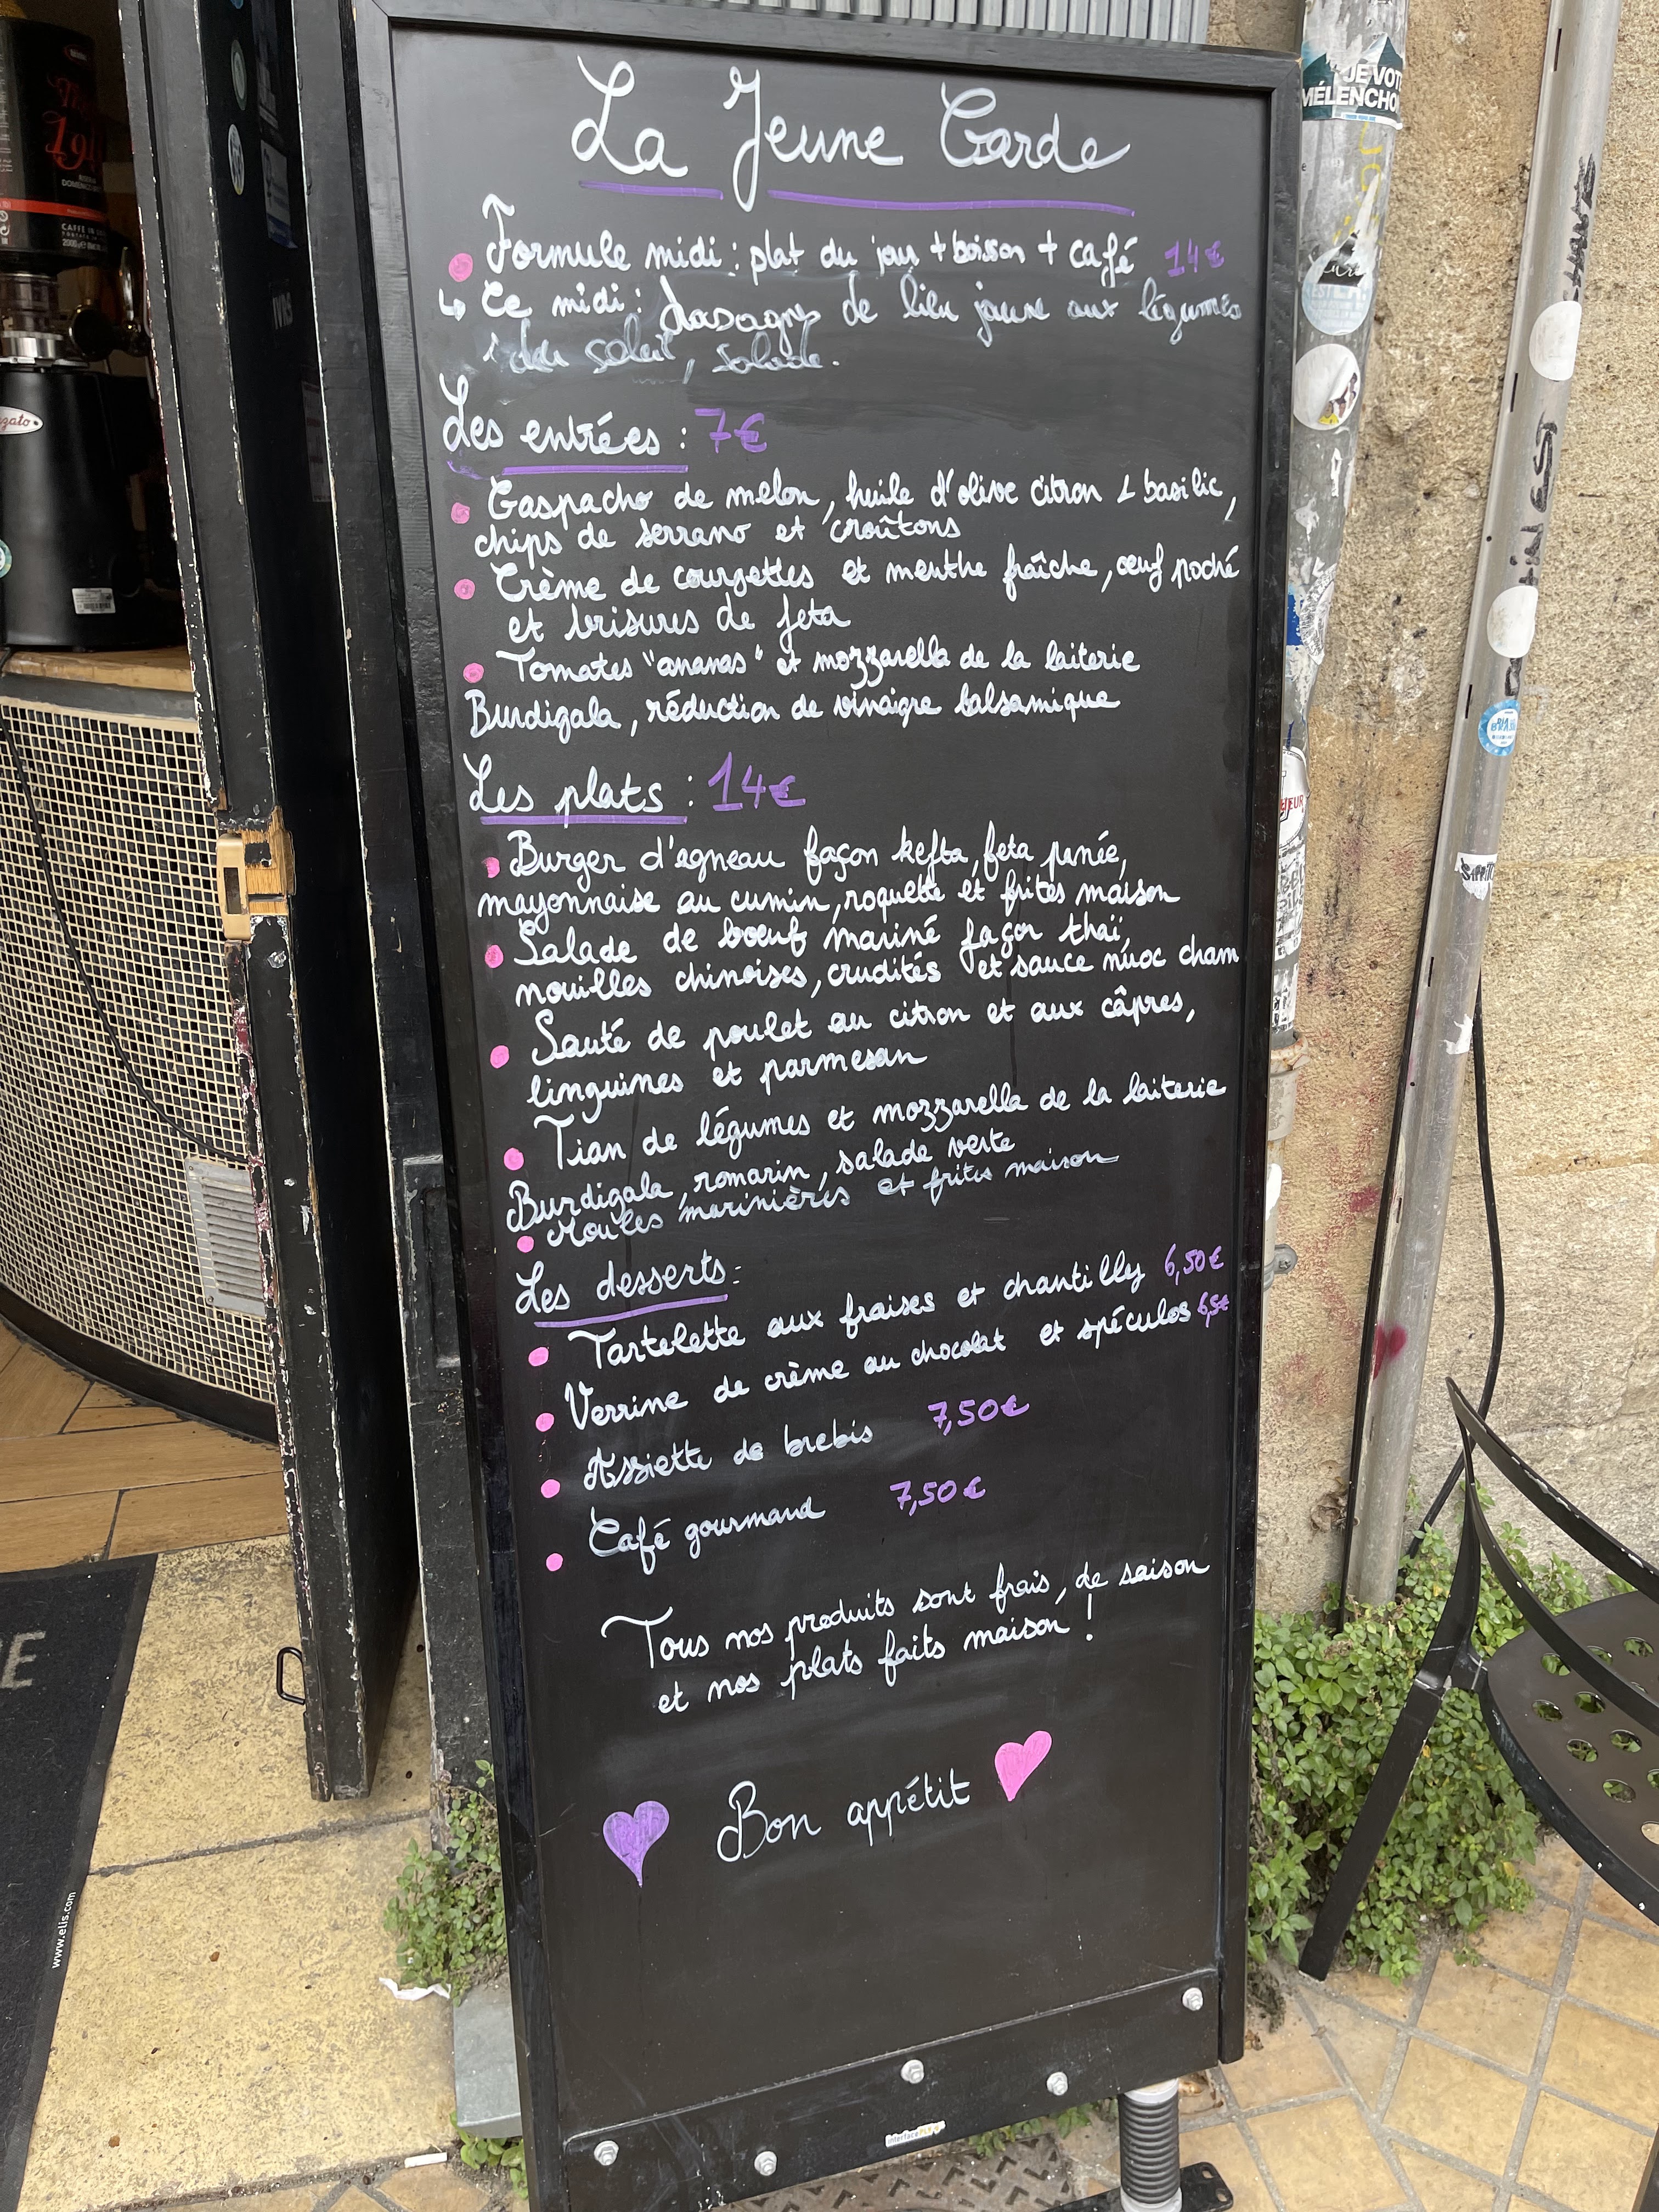 La Jeune Garde
Formule midi : plat du jour + boisson + café 14€
Ce midi : Lasagnes de lieu jaune aux légumes
du soleil, salade.
Les entrées : 7€
Gaspacho de melon, huile d'olive citron & basilic,
chips de serrano et croûtons
Crème de courgettes et menthe fraîche, œuf poché
et brisures de feta
Tomates "ananas" et mozzarella de la laiterie
Burdigala, réduction de vinaigre balsamique
Les plats : 14€
Burger d'agneau façon kefta, feta panée,
mayonnaise au cumin, roquette et frites maison
Salade de bœuf mariné façon thaï,
nouilles chinoises, crudités et sauce nuoc cham
Sauté de poulet au citron et aux câpres,
linguines et parmesan
Tian de légumes et mozzarella de la laiterie
Burdigala, romarin, salade verte
Moules marinières et frites maison
Les desserts :
Tartelette aux fraises et chantilly 6,50€
Verrine de crème au chocolat et spéculos 6,5€
Assiette de brebis 7,50€
Café gourmand 7,50€
Tous nos produits sont frais, de saison
et nos plats faits maison !
Bon appétit
JE VOT
MÉLENCHO
www.elis.com
CAFFÈ IN
2000g
zato
E